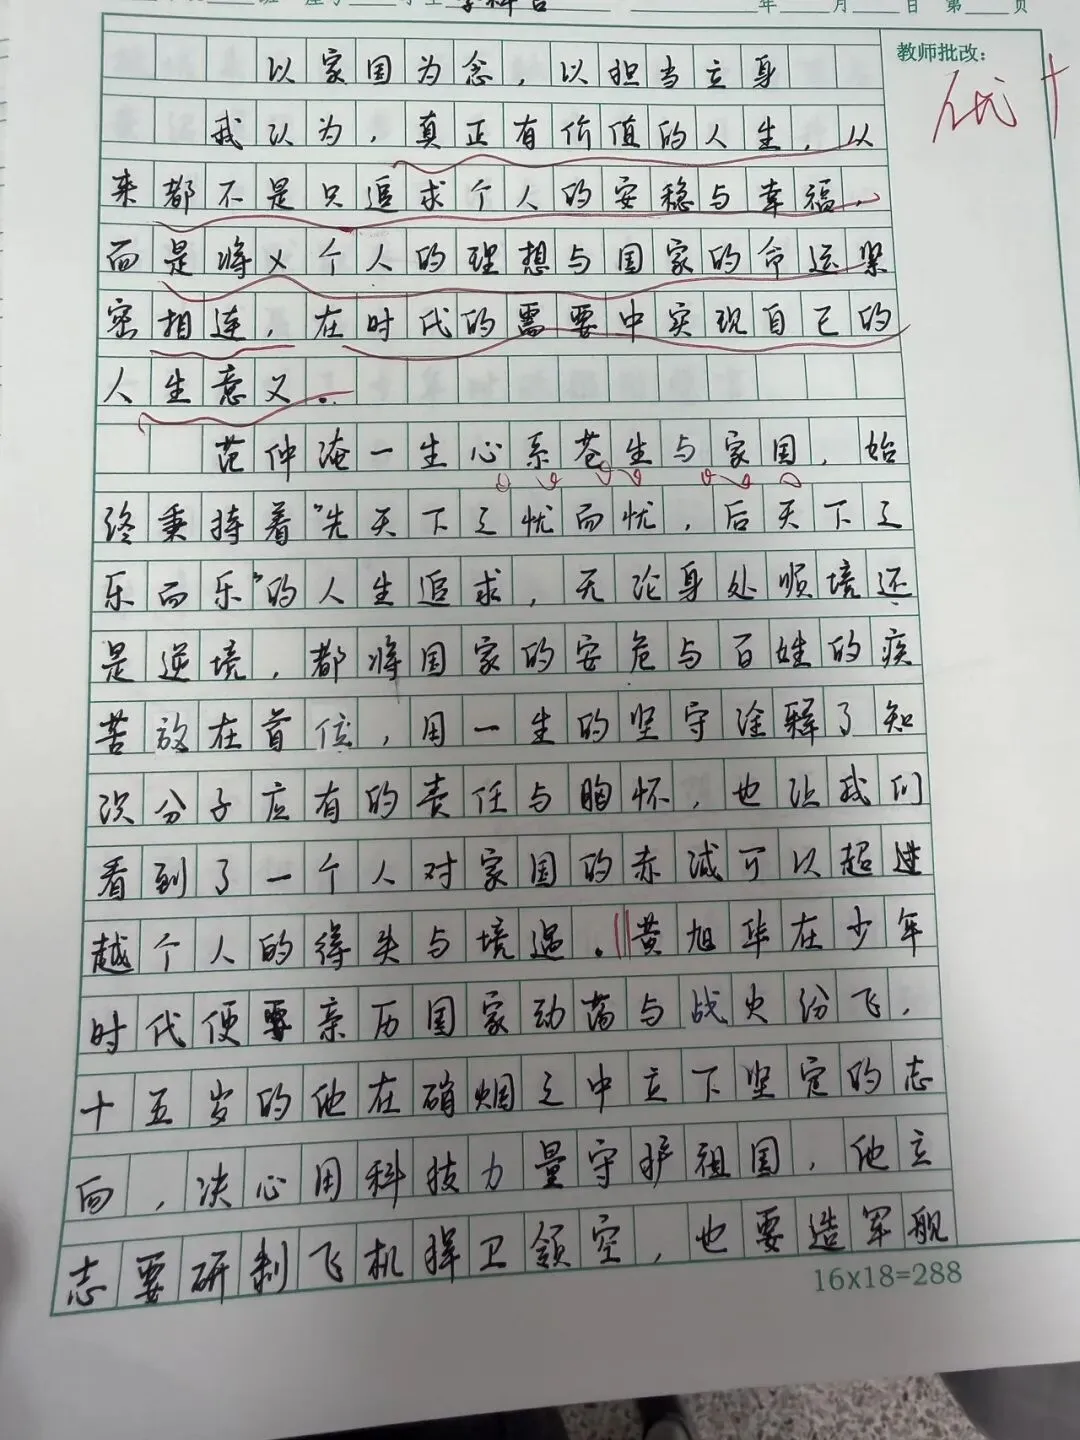 年 月 日 第 页
教师批改：
优+
以家国为念，以担当立身
我认为，真正有价值的人生，从
来都不是只追求个人的安稳与幸福，
而是将个人的理想与国家的命运紧
密相连，在时代的需要中实现自己的
人生意义。
范仲淹一生心系苍生与家国，始
终秉持着“先天下之忧而忧，后天下之
乐而乐”的人生追求，无论身处顺境还
是逆境，都将国家的安危与百姓的疾
苦放在首位，用一生的坚守诠释了知
识分子应有的责任与胸怀，也让我们
看到了一个人对家国的赤诚可以超进
越个人的得失与境遇。黄旭华在少年
时代便亲历国家动荡与战火纷飞，
十五岁的他在硝烟之中立下坚定的志
向，决心用科技力量守护祖国，他立
志要研制飞机捍卫领空，也要造军舰
16x18=288